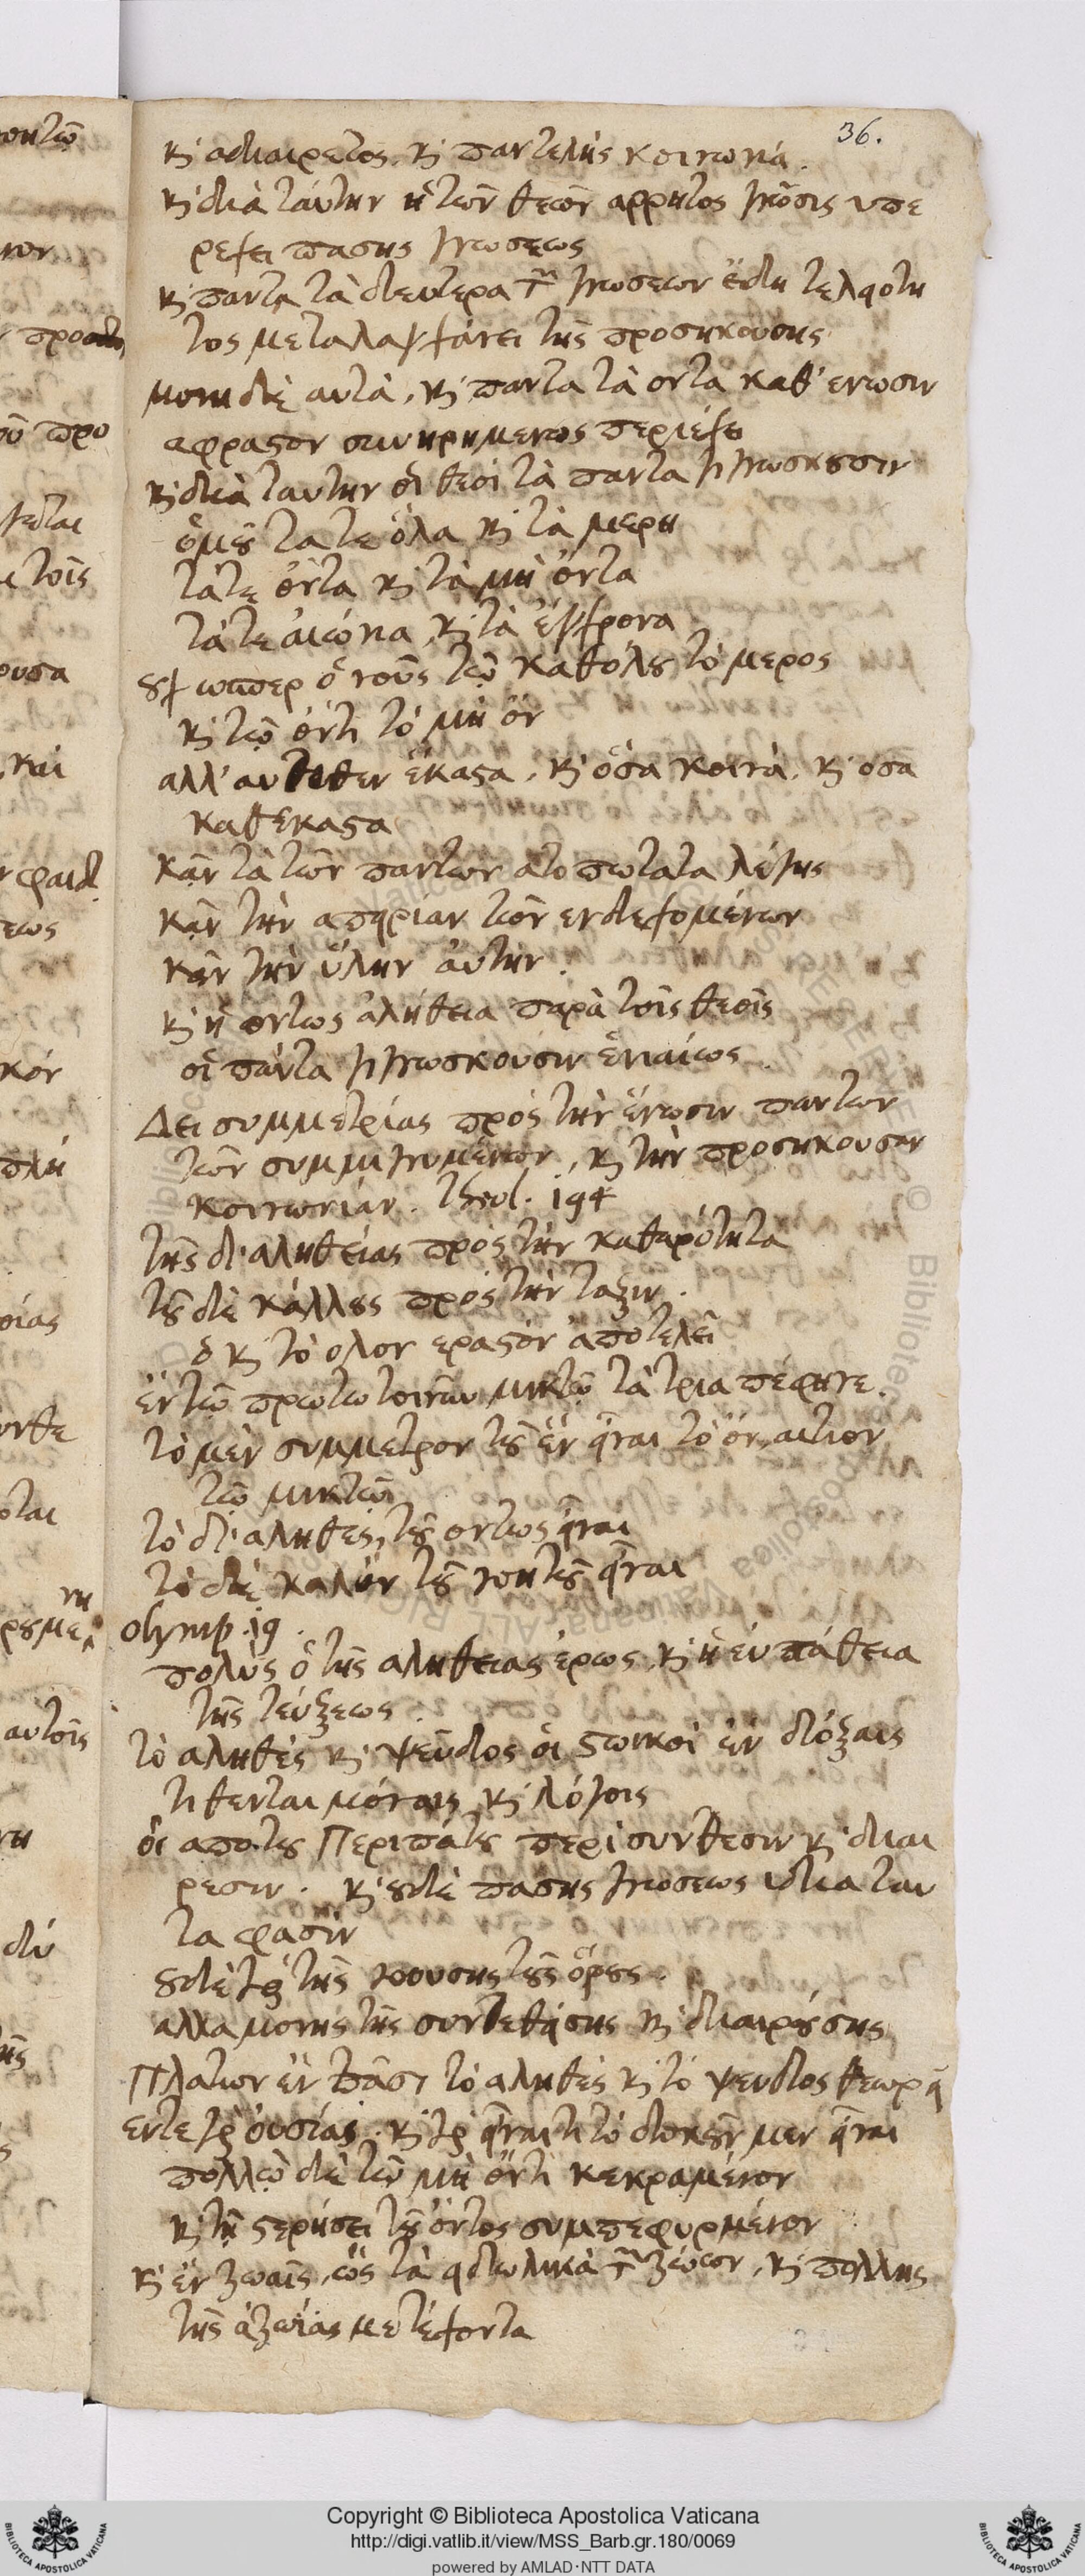 36.
κ̀ αδιαιρετος. κ̀ παντελὴς κοινωνία.
κ̀ διὰ ταύτην ἡ τῶν θεῶν αρρητος γνῶσις υπε
ρεχει πασης γνωσεως
κ̀ παντα τὰ δευτερα τ̃ γνωσεων εἴδη τελειοτη
τος μεταλαγχάνει τῆς προσηκουσης
μονη δὲ αυτὰ, κ̀ παντα τὰ οντα καθ' ενωσιν
αφραστον συνῃρημενως περιέχει
κ̀ διὰ ταυτην οἱ θεοὶ τὰ παντα γιγνωσκουσιν
ὁμοῦ τα τε ὅλα κ̀ τὰ μερη
τὰ τε ὄντα κ̀ τὰ μὴ ὄντα
τὰ τε αἰώνια, κ̀ τὰ ἔγχρονα
ουχ ωσπερ ὁ νοῦς τῷ καθόλου τὸ μερος
κ̀ τῷ ὄντι τὸ μὴ ὂν
αλλ' αυτοθεν ἕκαστα, κ̀ ὅσα κοινὰ, κ̀ οσα
καθεκαστα
κἂν τὰ τῶν παντων ατοπωτατα λέγης
κἂν τὴν απειρίαν τῶν ενδεχομένων
κἂν τὴν ὕλην ἀυτὴν.
κ̀ ἡ οντως ἀλήθεια παρὰ τοῖς θεοῖς
οἳ πάντα γιγνωσκουσιν ἑνιαίως.
Δει συμμετρίας πρὸς τὴν ἕνωσιν παντων
τῶν συμμιγνυμένων, κ̀ τὴν προσηκουσαν
κοινωνίαν. theol. 194
τῆς δ' αληθείας πρὸς τὴν καθαρότητα
τοῦ δὲ κάλλους πρὸς τὴν ταξιν.
ὃ κ̀ τὸ ολον εραστὸν ἀποτελεῖ
ἐν τῷ πρωτω τοινῦν μικτῷ τὰ τρια πέφηνε.
τὸ μὲν συμμετρον τοῦ ἓν εἶναι τὸ ὂν, αιτιον
τῷ μικτῷ
τὸ δ' αληθὲς, τοῦ οντως εἶναι
τὸ δὲ καλὸν τοῦ νοητοῦ εἶναι
olymp. 19.
πολὺς ὁ τῆς αληθειας ἔρως, κ̀ ἡ ἐυπάθεια
τῆς τεύξεως.
τὸ αληθὲς κ̀ ψεῦδος ὁι στωικοὶ ἐν δόξαις
τιθενται μόναις κ̀ λόγοις
ὁι απο του Περιπάτου περὶ συνθεσιν κ̀ διαι
ρεσιν. κ̀ ουδὲ πασης γνωσεως ιδια ταυ
τα φασὶν
ουδὲ γὰρ τῆς νοουσης τοὺς ὅρους.
αλλα μονης τῆς συντεθείσης κ̀ διαιρούσης
Πλατων ἐν πᾶσι τὸ αληθὲς κ̀ τὸ ψευδος θεωρεῖ
εν τε γὰρ ὀυσίαις. κ̀ γὰρ εἶναι τι τὸ δοκοῦν μεν εἶναι
πολλῷ δὲ τῷ μὴ ὄντι κεκραμένον
κ̀ τῇ στερήσει τοῦ ὄντος συμπεφυρμένον
κ̀ ἐν ζωαῖς, ὡς τὰ ειδωλικὰ τ̃ ζώων, κ̀ πολλης
τῆς ἀζωίας μετέχοντα
Copyright © Biblioteca Apostolica Vaticana
http://digi.vatlib.it/view/MSS_Barb.gr.180/0069
powered by AMLAD·NTT DATA